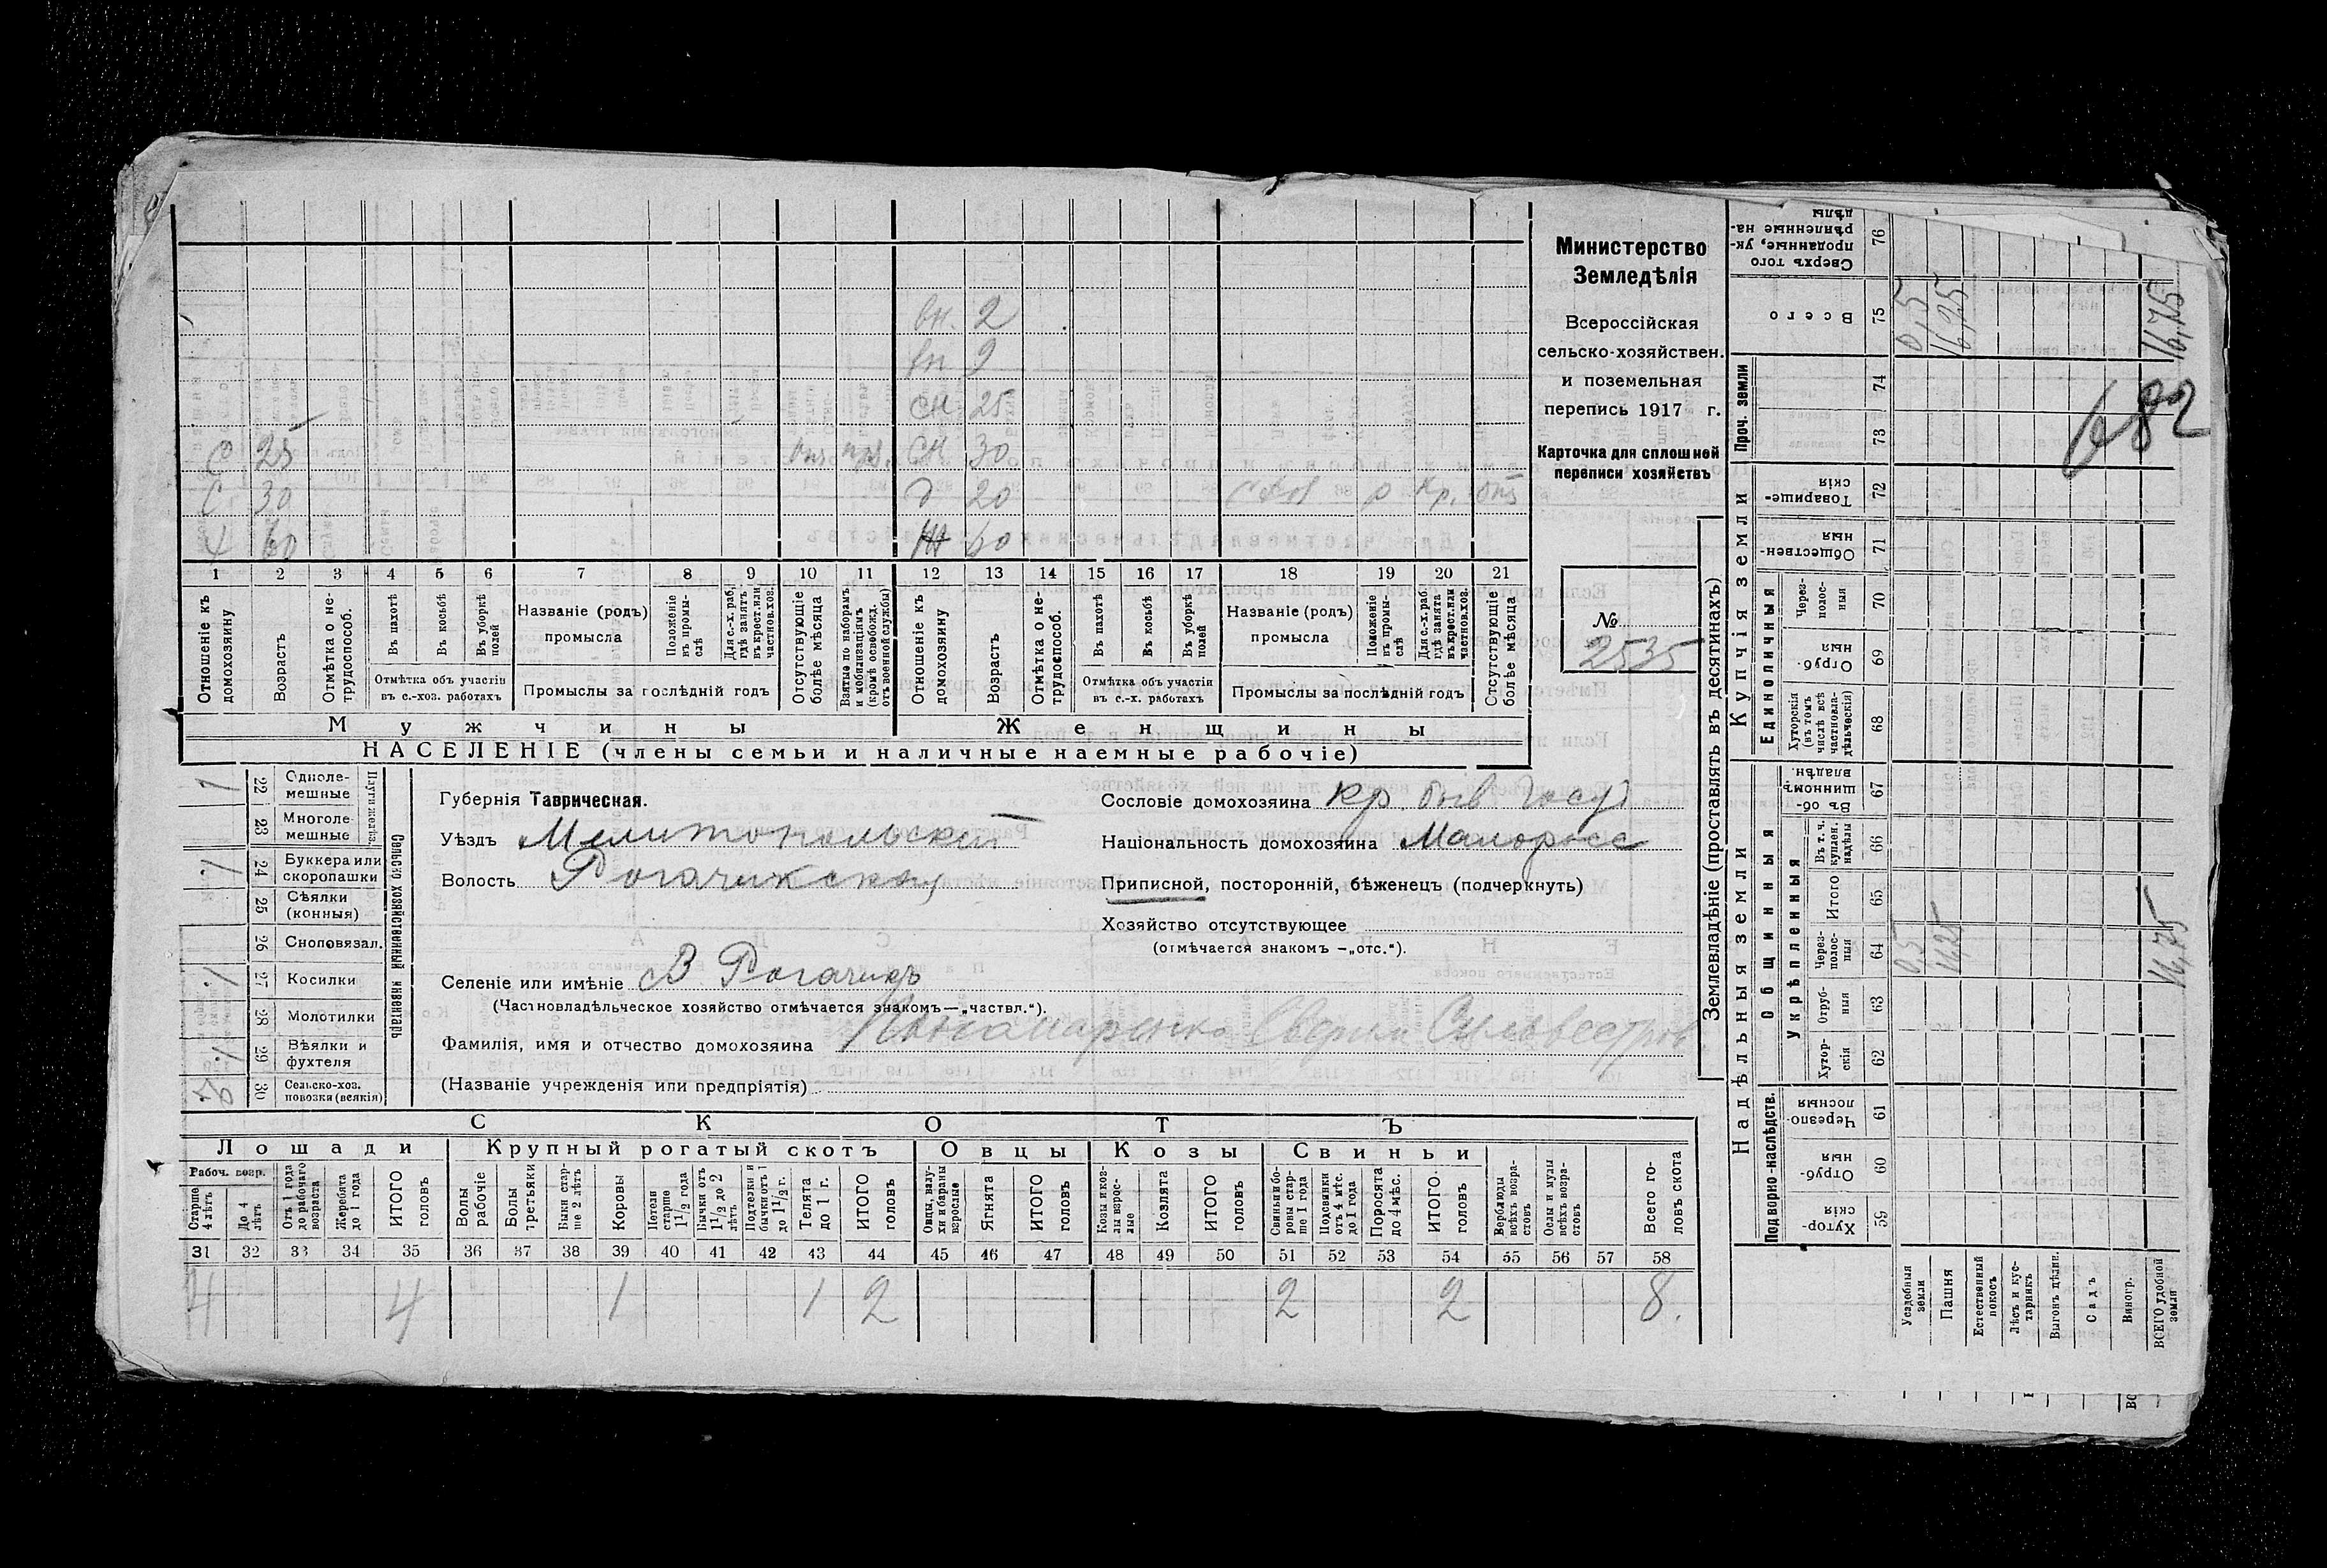 вн. 2
вн 9
сн 25
С 25 отс моб. сн 30
С 30 д 20 р кр. отс
Х 60 Ж 60
1 2 3 4 5 6 7 8 9 10 11 12 13 14 15 16 17 18 19 20 21
Отношеніе къ домохозяину
Возрастъ
Отмѣтка о нетрудоспособ.
Въ пахотѣ
Въ косьбѣ
Въ уборкѣ полей
Отмѣтка объ участіи въ с.-хоз. работахъ
Названіе (родъ) промысла
Положеніе въ промыслѣ
Для с.-х. раб. гдѣ занятъ въ крест. или частнов. хоз.
Промыслы за послѣдній годъ
Отсутствующіе болѣе мѣсяца
Взятые по наборамъ и мобилизаціямъ (кромѣ освобожд. отъ военной службы)
Отношеніе къ домохозяину
Возрастъ
Отмѣтка о нетрудоспособ.
Въ пахотѣ
Въ косьбѣ
Въ уборкѣ полей
Отмѣтка объ участіи въ с.-х. работахъ
Названіе (родъ) промысла
Положеніе въ промыслѣ
Для с.-х. раб. гдѣ занята въ крест. или частнов. хоз.
Промыслы за послѣдній годъ
Отсутствующіе болѣе мѣсяца
Мужчины Женщины
НАСЕЛЕНІЕ (члены семьи и наличные наемные рабочіе)
Министерство
Земледѣлія
Всероссійская
сельско-хозяйствен.
и поземельная
перепись 1917 г.
Карточка для сплошной
переписи хозяйствъ
№
2535
Сельско хозяйственный инвентарь
Плуги желѣз.
22 Одноле-мешные 1
23 Многоле-мешные
24 Буккера или скоропашки 1
25 Сѣялки (конныя)
26 Сноповязал.
27 Косилки 1
28 Молотилки
29 Вѣялки и фухтеля 1
30 Сельско-хоз. повозки (всякія) 2
Губернія Таврическая.
Уѣздъ Мелитопольскій
Волость Рогачикская
Сословіе домохозяина кр. быв госуд
Національность домохозяина Малоросс
Приписной, посторонній, бѣженецъ (подчеркнуть)
Хозяйство отсутствующее
(отмѣчается знакомъ —„отс.“).
Селеніе или имѣніе В Рогачикъ
(Частновладѣльческое хозяйство отмѣчается знакомъ—„частвл.“).
Фамилія, имя и отчество домохозяина Пономаренко Сверин Сильвестров
(Названіе учрежденія или предпріятія)
СКОТЪ
Лошади Крупный рогатый скотъ Овцы Козы Свиньи
Рабоч. возр.
Старше 4 лѣтъ
До 4 лѣтъ
Отъ 1 года до рабочаго возраста
Жеребята до 1 года
ИТОГО головъ
Волы рабочіе
Волы третьяки
Быки старше 2 лѣтъ
Коровы
Нетели старше 1 1/2 года
Бычки отъ 1 1/2 до 2 лѣтъ
Подтелки и бычки отъ 1 до 1 1/2 г.
Телята до 1 г.
ИТОГО головъ
Овцы, валухи и бараны взрослые
Ягнята
ИТОГО головъ
Козы и козлы взрослые
Козлята
ИТОГО головъ
Свиньи боровы старше 1 года
Подсвинки отъ 4 мѣс. до 1 года
Поросята до 4 мѣс.
ИТОГО головъ
Верблюды всѣхъ возрастовъ
Ослы и мулы всѣхъ возрастовъ
Всего головъ скота
31 32 33 34 35 36 37 38 39 40 41 42 43 44 45 46 47 48 49 50 51 52 53 54 55 56 57 58
4 4 1 1 2 2 2 8.
Землевладѣніе (проставлять въ десятинахъ)
Надѣльныя земли Купчія земли Проч. земли
Подворно-наслѣдств.
Общинныя
Укрѣпленныя
Единоличныя
59 Хуторскія
60 Отрубныя
61 Черезполосныя
62 Хуторскія
63 Отрубныя
64 Черезполосныя 0,5 16,25 16,75
65 Итого
66 Въ т. ч. куплен. надѣлы
67 Въ общинномъ владѣн.
68 Хуторскія (въ томъ числѣ всѣ частновладѣльческія)
69 Отрубныя
70 Черезполосныя
71 Общественныя
72 Товарищескія
73
74
75 Всего 0,5 16,25 16,75
76 Сверхъ того проданные, укрѣпленные надѣлы
682
Усадебныя земли
Пашня
Естественный покосъ
Лѣсъ и кустарникъ
Выгонъ дѣлин.
Садъ
Виногр.
ВСЕГО удобной земли